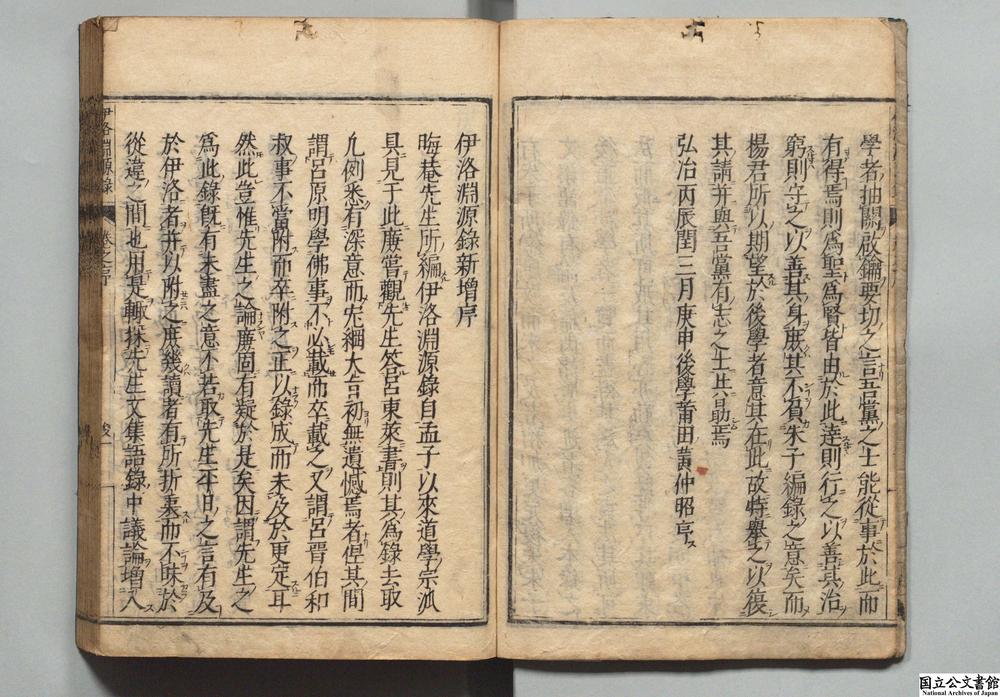 學者抽關啟鑰要切之言吾黨之士能從事於此而
有得焉則為聖為賢皆由於此達則行之以善其治
窮則守之以善其身庶其不負朱子編錄之意矣而
楊君所以期望於後學者意其在此故特舉之以復
其請并與吾黨有志之士共勗焉
弘治丙辰閏三月庚申後學莆田黃仲昭序
伊洛淵源錄新增序
晦菴先生所編伊洛淵源錄自孟子以來道學宗派
具見于此廉嘗觀先生答呂東萊書則其為錄去取
凡例悉有深意而宏綱大旨初無遺憾焉者但其間
謂呂原明學佛事不必載而卒載之又謂呂晋伯和
叔事不當附而卒附之正以錄成而未及於更定耳
然此豈惟先生之論廉固有疑於是矣因謂先生之
為此錄旣有未盡之意不若取先生平日之言有及
於伊洛者并以附之庶幾讀者有所折衷而不昧於
從違之間也用是輙採先生文集語錄中議論增入
伊洛淵源錄
國立公文書館
National Archives of Japan